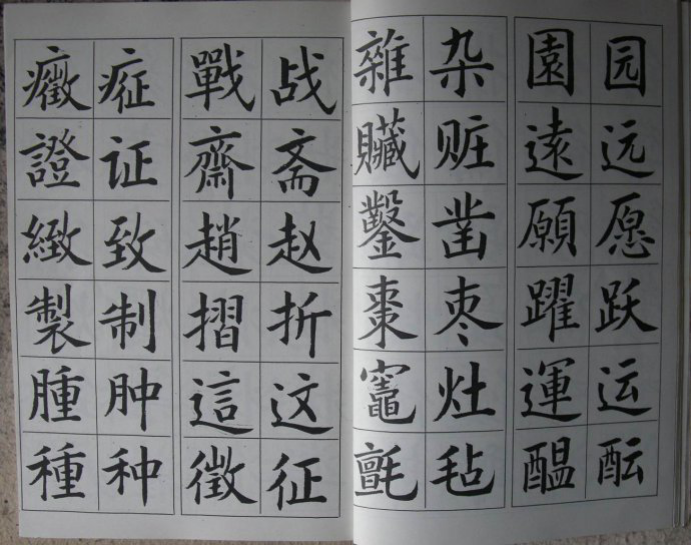 園园
遠远
願愿
躍跃
運运
醖酝
雜杂
贜赃
鑿凿
棗枣
竈灶
氈毡
戰战
齋斋
趙赵
摺折
這这
徵征
癥症
證证
緻致
製制
腫肿
種种